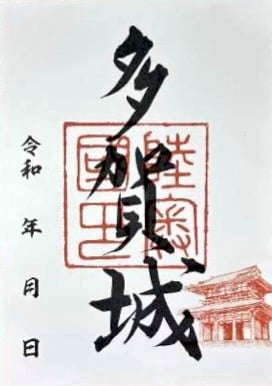 多賀城
陸奥國印
令和 年 月 日